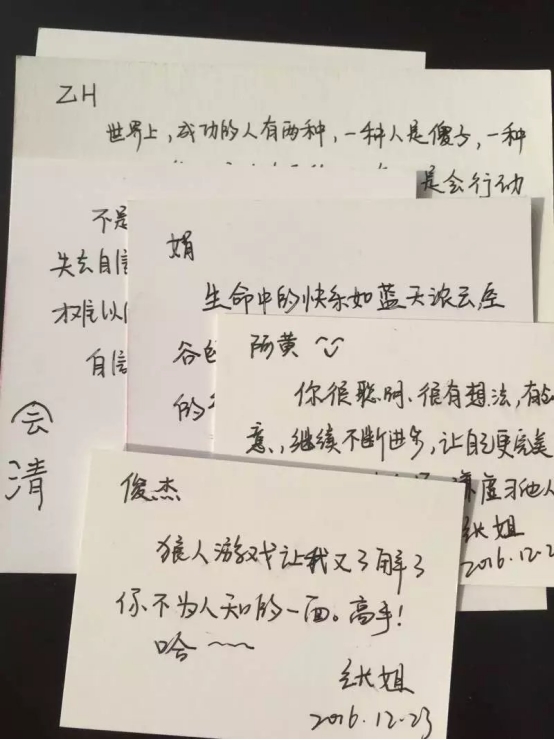 ZH
世界上，成功的人有两种，一种人是傻子，一种
是会行动
不是
失去自信
才难以
自信
云清
娟
生命中的快乐如蓝天浓云座
谷
的
阿黄
你很聪明、很有想法，有
意，继续不断进步，让自己更完美
谦虚习他人
张姐
2016.12.2
俊杰
狼人游戏让我又了解了
你不为人知的一面。高手！
哈~~
张姐
2016.12.23